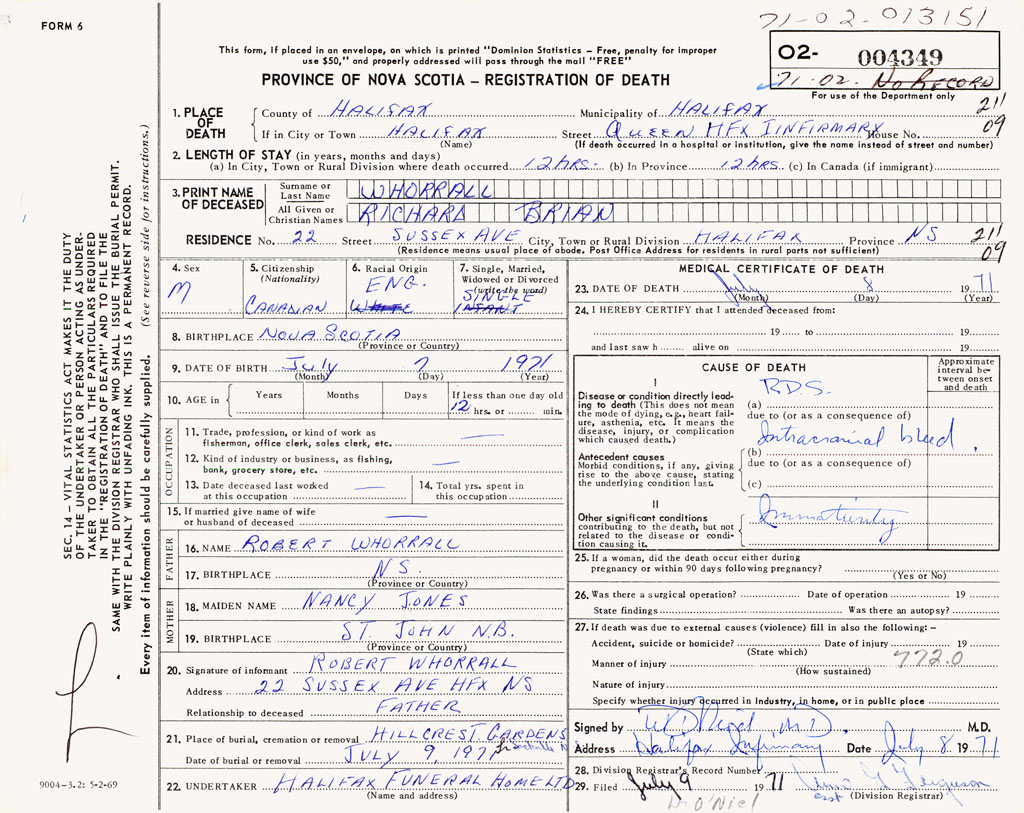 71-02-013151
FORM 6
This form, if placed in an envelope, on which is printed "Dominion Statistics – Free, penalty for improper
use $50," and properly addressed will pass through the mail "FREE"
PROVINCE OF NOVA SCOTIA – REGISTRATION OF DEATH
02- 004349
71-02. No RECORD
For use of the Department only
211
09
1. PLACE OF DEATH
County of HALIFAX Municipality of HALIFAX
If in City or Town HALIFAX Street QUEEN HFX IINFIRMARY House No.
(Name) (If death occurred in a hospital or institution, give the name instead of street and number)
2. LENGTH OF STAY (in years, months and days)
(a) In City, Town or Rural Division where death occurred 12 HRS. (b) In Province 12 HRS. (c) In Canada (if immigrant)
3. PRINT NAME OF DECEASED
Surname or Last Name WHORRALL
All Given or Christian Names RICHARD BRIAN
RESIDENCE No. 22 Street SUSSEX AVE City, Town or Rural Division HALIFAX Province NS
(Residence means usual place of abode. Post Office Address for residents in rural parts not sufficient)
211
09
4. Sex
M
5. Citizenship
(Nationality)
CANADIAN
6. Racial Origin
ENG.
WHITE
7. Single, Married,
Widowed or Divorced
(write the word)
SINGLE
INFANT
8. BIRTHPLACE NOVA SCOTIA
(Province or Country)
9. DATE OF BIRTH July 7 1971
(Month) (Day) (Year)
10. AGE in Years Months Days If less than one day old
12 hrs. or min.
OCCUPATION
11. Trade, profession, or kind of work as
fisherman, office clerk, sales clerk, etc. —
12. Kind of industry or business, as fishing,
bank, grocery store, etc. —
13. Date deceased last worked
at this occupation —
14. Total yrs. spent in
this occupation
15. If married give name of wife
or husband of deceased —
FATHER
16. NAME ROBERT WHORRALL
17. BIRTHPLACE N.S.
(Province or Country)
MOTHER
18. MAIDEN NAME NANCY JONES
19. BIRTHPLACE ST. JOHN N.B.
(Province or Country)
20. Signature of informant ROBERT WHORRALL
Address 22 SUSSEX AVE HFX NS
Relationship to deceased FATHER
21. Place of burial, cremation or removal HILLCREST GARDENS
Date of burial or removal JULY 9, 1971
22. UNDERTAKER HALIFAX FUNERAL HOME LTD
(Name and address)
MEDICAL CERTIFICATE OF DEATH
23. DATE OF DEATH July 8 1971
(Month) (Day) (Year)
24. I HEREBY CERTIFY that I attended deceased from:
19 to 19
and last saw h alive on 19
CAUSE OF DEATH
Approximate
interval be-
tween onset
and death
I
Disease or condition directly lead-
ing to death (This does not mean
the mode of dying, e.g., heart fail-
ure, asthenia, etc. It means the
disease, injury, or complication
which caused death.)
R.D.S.
(a)
due to (or as a consequence of)
Intracranial bleed
Antecedent causes
Morbid conditions, if any, giving
rise to the above cause, stating
the underlying condition last.
(b)
due to (or as a consequence of)
(c)
II
Other significant conditions
contributing to the death, but not
related to the disease or condi-
tion causing it.
Immaturity
25. If a woman, did the death occur either during
pregnancy or within 90 days following pregnancy?
(Yes or No)
26. Was there a surgical operation? Date of operation 19
State findings Was there an autopsy?
27. If death was due to external causes (violence) fill in also the following: –
Accident, suicide or homicide? Date of injury 19
(State which) 772.0
Manner of injury
(How sustained)
Nature of injury
Specify whether injury occurred in industry, in home, or in public place
Signed by M.D. M.D.
Address Halifax Infirmary Date July 8 1971
28. Division Registrar's Record Number
29. Filed July 9 1971 Ferguson
(Division Registrar)
O'Niel
SEC. 14 – VITAL STATISTICS ACT MAKES IT THE DUTY
OF THE UNDERTAKER OR PERSON ACTING AS UNDER-
TAKER TO OBTAIN ALL THE PARTICULARS REQUIRED
IN THE "REGISTRATION OF DEATH" AND TO FILE THE
SAME WITH THE DIVISION REGISTRAR WHO SHALL ISSUE THE BURIAL PERMIT.
WRITE PLAINLY WITH UNFADING INK. THIS IS A PERMANENT RECORD.
Every item of information should be carefully supplied. (See reverse side for instructions.)
9004-3.2: 5-2-69